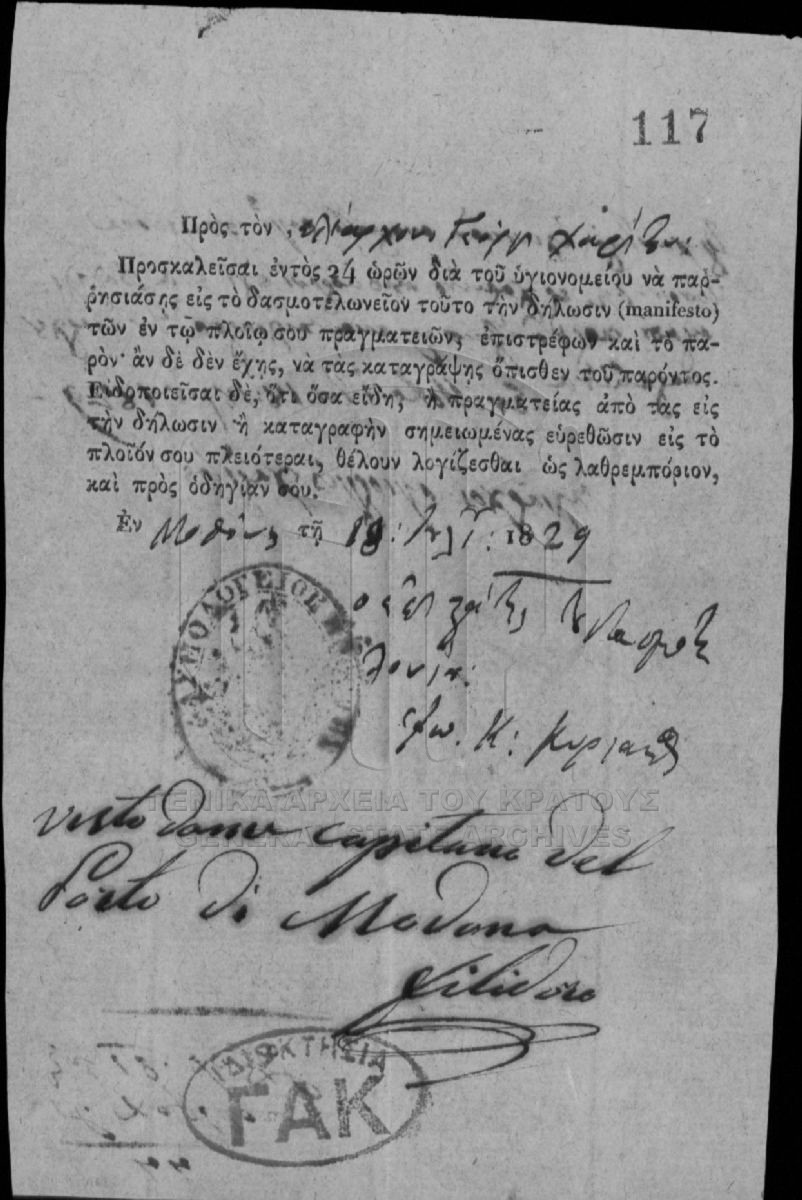 117
Πρὸς τὸν πλοίαρχον
Προσκαλεῖσαι ἐντὸς 24 ὡρῶν διὰ τοῦ ὑγιονομείου νὰ παῤ-
ῥησιάσῃς εἰς τὸ δασμοτελωνεῖον τοῦτο τὴν δήλωσιν (manifesto)
τῶν ἐν τῷ πλοίῳ σου πραγματειῶν, ἐπιστρέφων καὶ τὸ πα-
ρόν· ἂν δὲ δὲν ἔχῃς, νὰ τὰς καταγράψῃς ὄπισθεν τοῦ παρόντος.
Εἰδοποιεῖσαι δὲ, ὅτι ὅσα εἴδη, ἢ πραγματείας ἀπὸ τας εἰς
τὴν δήλωσιν ἢ καταγραφὴν σημειωμένας εὑρεθῶσιν εἰς τὸ
πλοῖόν σου πλειότεραι, θέλουν λογίζεσθαι ὡς λαθρεμπόριον,
καὶ πρὸς ὁδηγίαν σου.
Ἐν Μοθώνῃ τῇ 1829
Κ: Κυριακοῦ
visto da me capitano del
Porto di Modona
ΓΕΝΙΚΑ ΑΡΧΕΙΑ ΤΟΥ ΚΡΑΤΟΥΣ
GENERAL STATE ARCHIVES
ΙΔΙΟΚΤΗΣΙΑ
ΓΑΚ